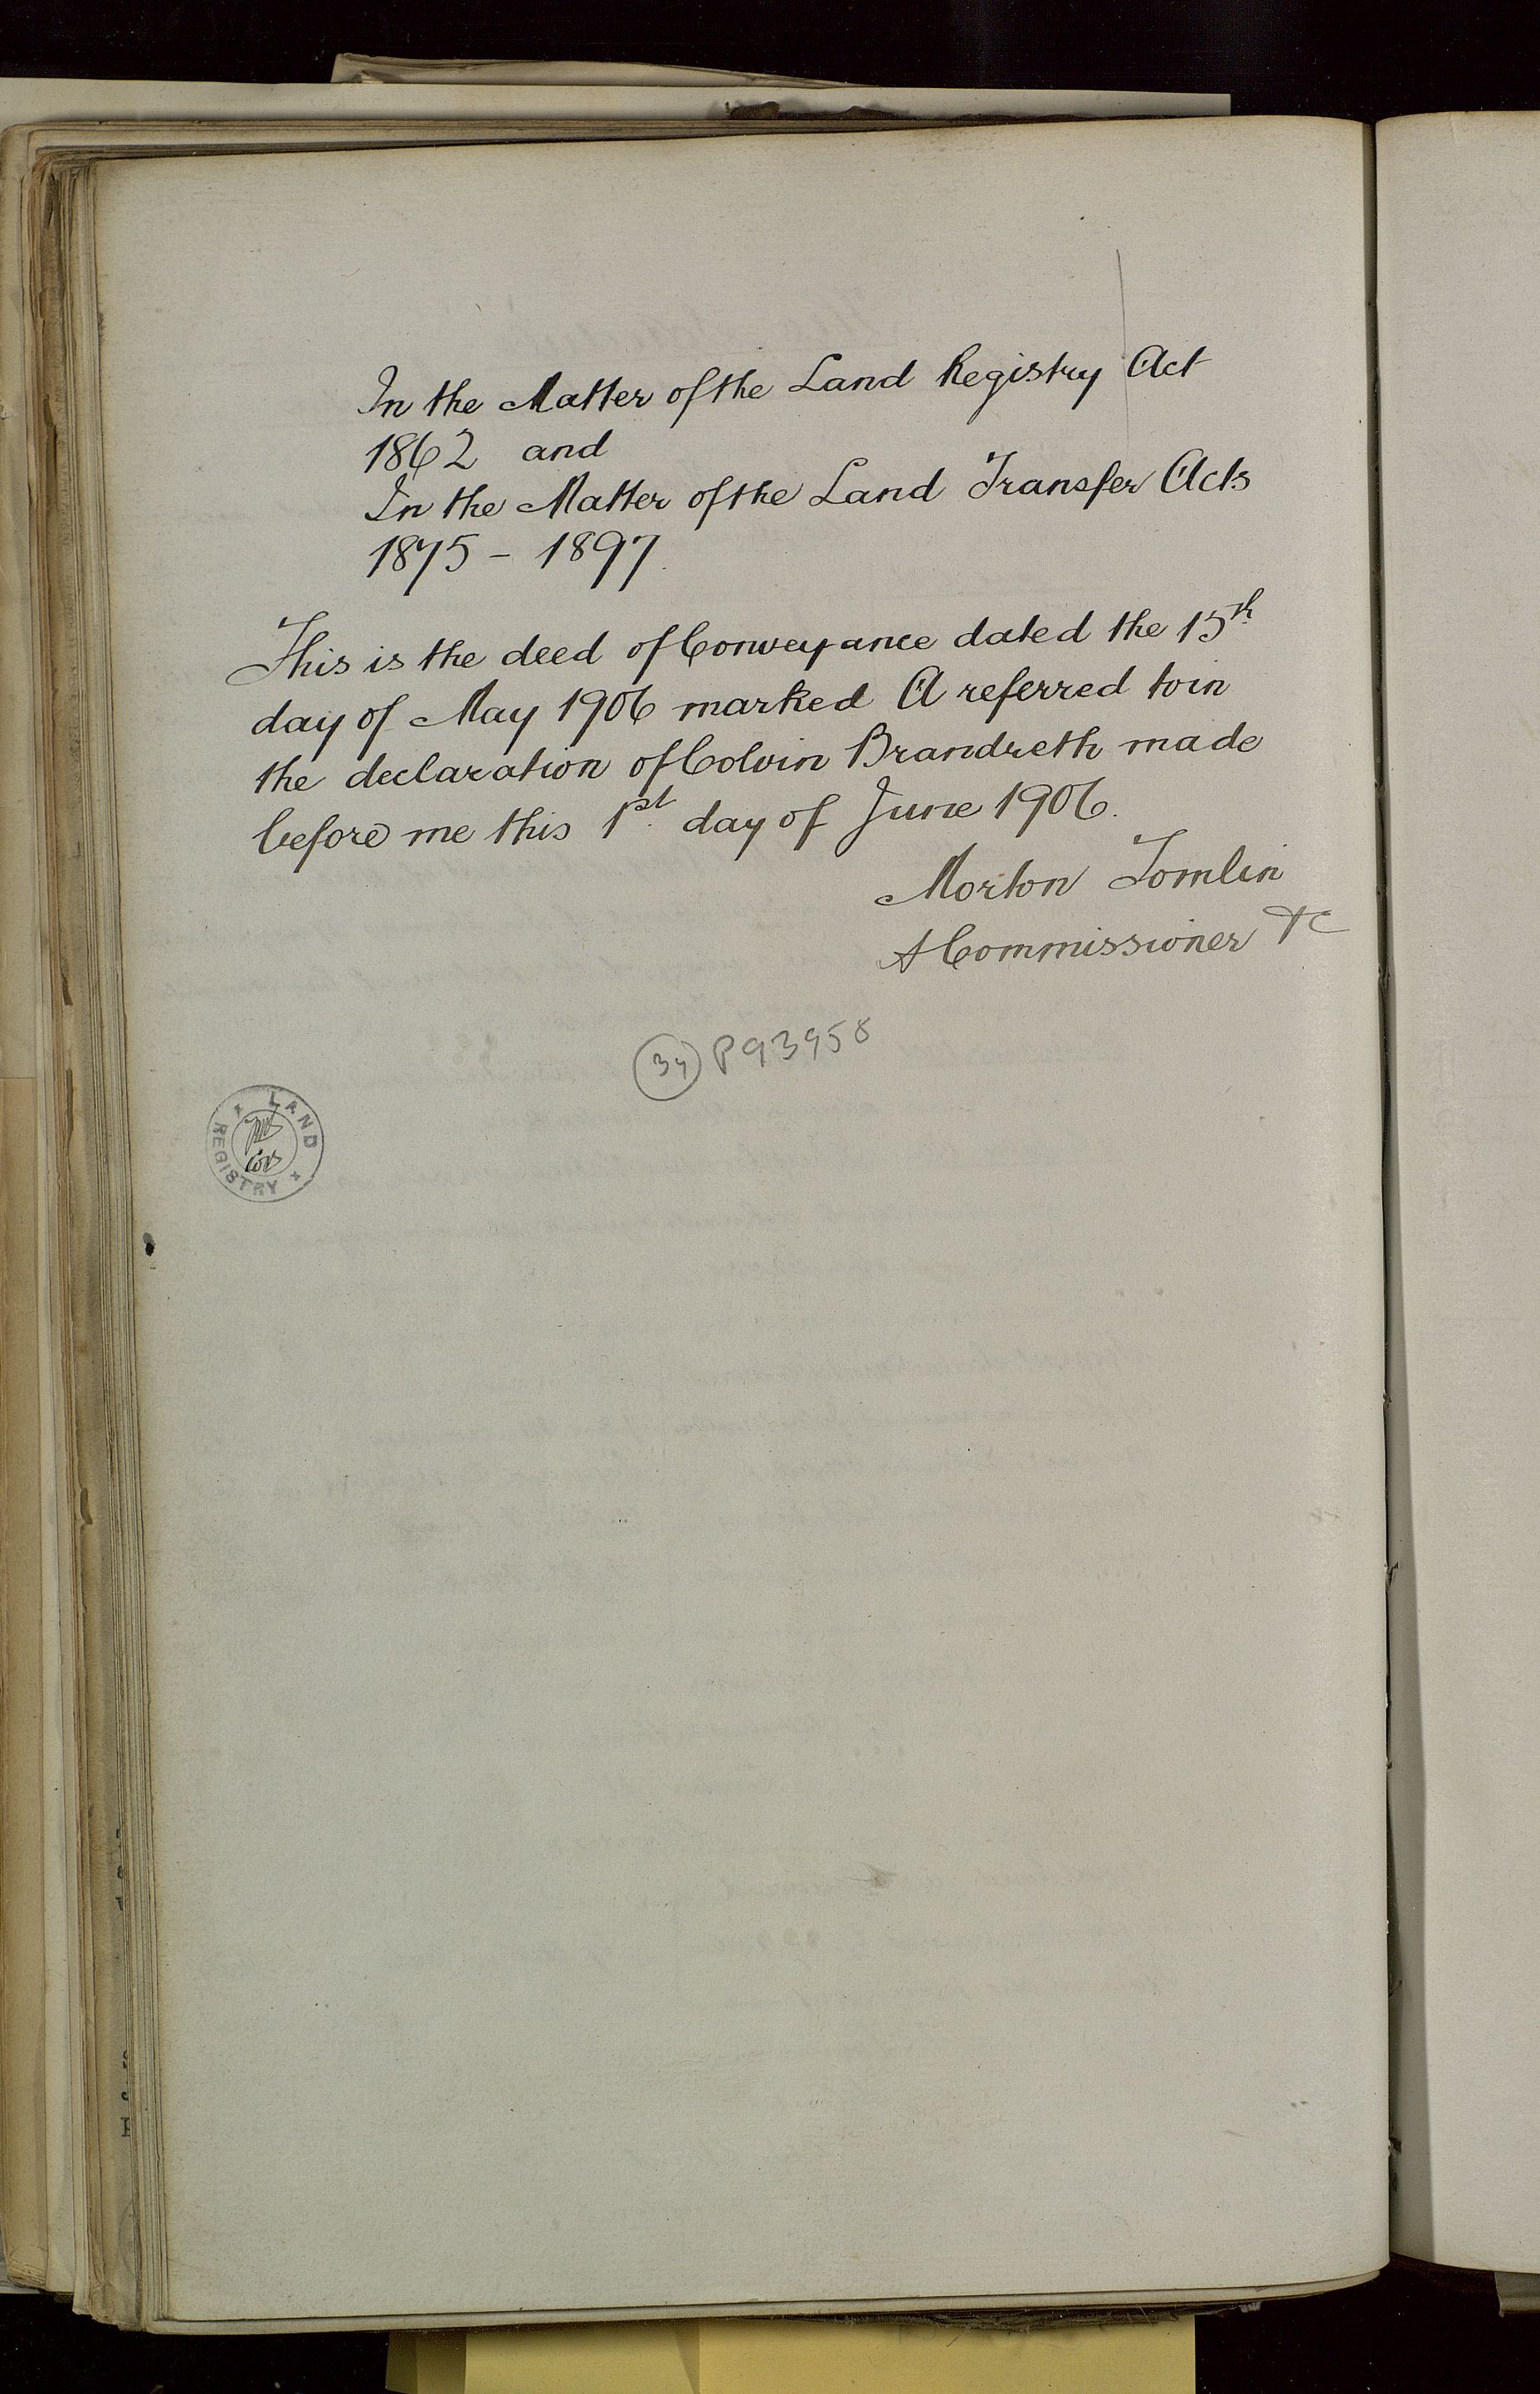 In the Matter of the Land Registry Act
1862 and
In the Matter of the Land Transfer Acts
1875 - 1897.
This is the deed of Conveyance dated the 15th
day of May 1906 marked A referred to in
the declaration of Colvin Brandreth made
before me this 1st day of June 1906.
Morton Tomlin
A Commissioner &c
34 P93958
LAND
REGISTRY